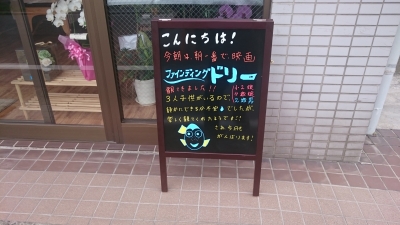 こんにちは!
今朝は朝一番で映画
ファインディングドリー
観てきました!!
3人子供がいるので、
静かにできるか不安でしたが、
楽しく観てくれたようです!
さあ今日も
がんばります!